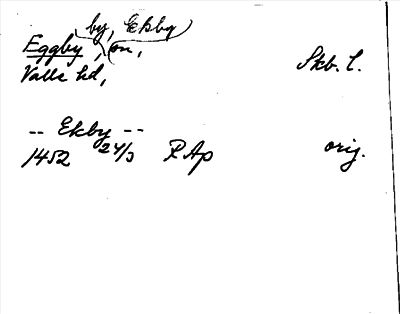 by, Ekby
Eggby, sn, Skb. l.
Valle hd,
-- Ekby --
1452 24/3 RAp orig.